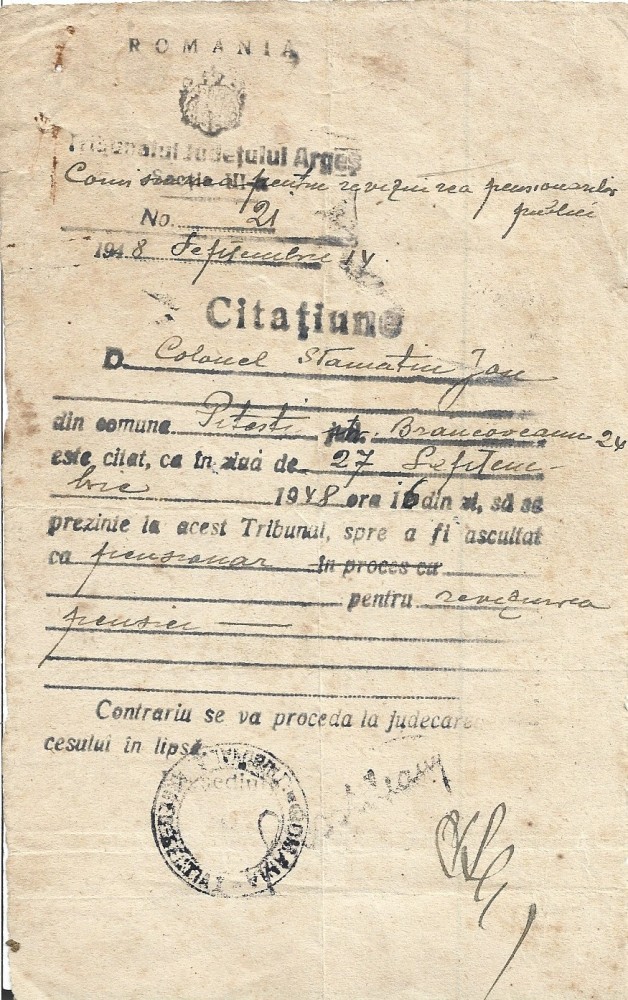 ROMANIA
Tribunalul Judeţului Argeş
Secţia III-a
Comisiunea pentru revizuirea pensionarilor
publici
No. 21
1948 Septembrie 14
Citaţiune
D. Colonel Stamatin Ion
din comuna Piteşti str. Brancoveanu 24
este citat, ca în ziua de 27 Septem-
brie 1948 ora 16 din zi, să se
prezinte la acest Tribunal, spre a fi ascultat
ca pensionar în proces cu
pentru revizuirea
pensiei
Contrariu se va proceda la judecare
cesului în lipsă.
ROMANIA